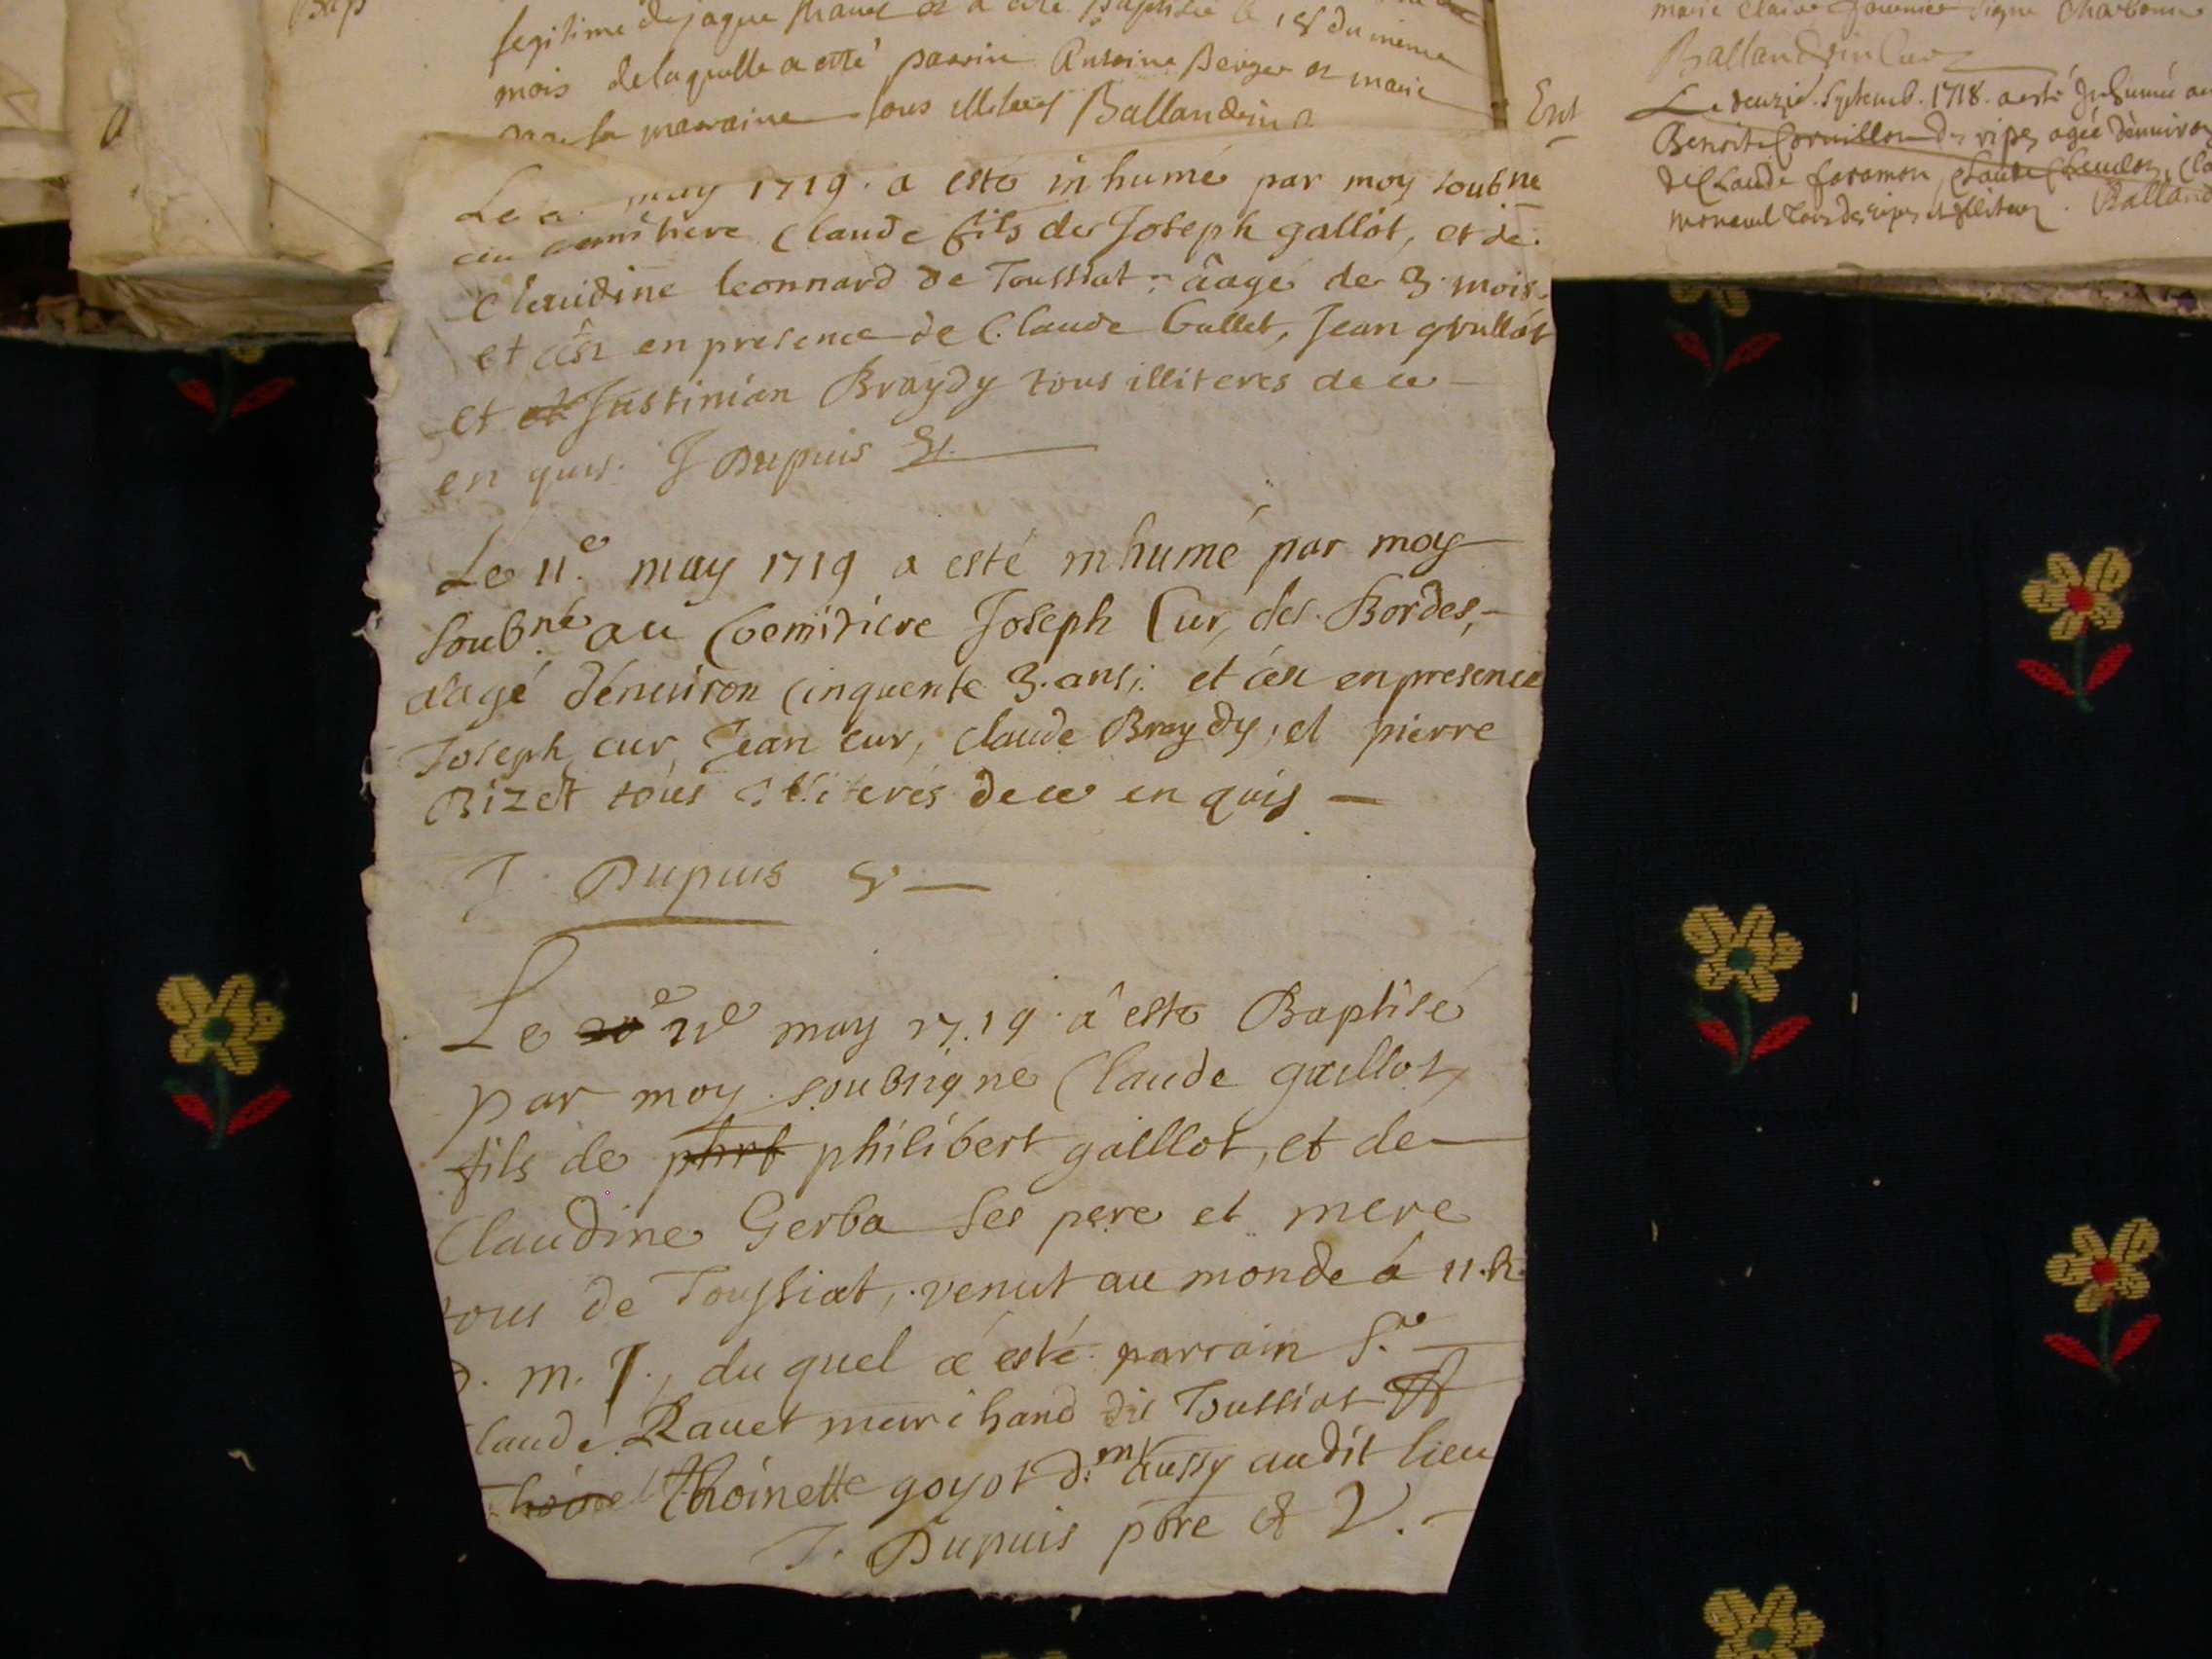 Bap
legitime de jaque
a esté Baptisée le 18 du meme
mois de laquelle a etté parrin Antoine Berger et marie
la maraine tous illiteres Ballandrin
Ent
marie claire fournier signe Charbonne
Ballandrin Cur
Le deuzie. Septemb. 1718. a esté Inhumée au
Benoite Cornillon des ripes agée d'enuiron
de Claude
tous des ripes et illiteres. Balland
Le may 1719. a esté inhumé par moy soubné
au cemitiere Claude fils de Joseph gallot, et de
Claudine leonnard de Toussiat, âagé de 3. mois
et cest en presence de Claude Gullet, Jean grullot
et et Justinian Braydy tous illiteres de ce
en quis. J Dupuis
Le 11.e may 1719 a esté inhumé par moy
soub.né au Coemitiere Joseph Cur, des Bordes,
âagé d'enuiron cinquente 3. ans; et cest en presence
Joseph cur, Jean cur, claude Braydy, et pierre
Bizet tous illiterés de ce en quis
J. Dupuis
Le 20e 21e may 1719. â esté Baptisé
par moy soubsigné Claude gaillot,
fils de phrt philibert gaillot, et de
Claudine Gerba ses pere et mere
tous de Toussiat, venut au monde á 11.h.
D. m. J., du quel á esté parrain S.r
laude Rauet marchand dit Toussiat et
thoine thoinette goyot d.mt aussy audit lieu
J. Dupuis pbre & V.